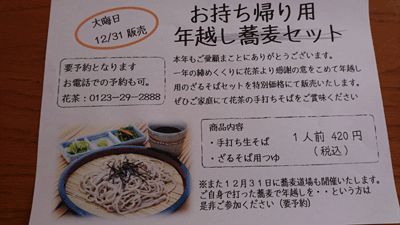 大晦日
12/31 販売
お持ち帰り用
年越し蕎麦セット
要予約となります
お電話での予約も可。
花茶：0123－29－2888
本年もご愛顧まことにありがとうございます。
一年の締めくくりに花茶より感謝の意をこめて年越し
用のざるそばセットを特別価格にて販売いたします。
ぜひご家庭にて花茶の手打ちそばをご賞味ください
商品内容
・手打ち生そば
・ざるそば用つゆ
1人前 420円
（税込）
※また12月31日に蕎麦道場も開催いたします。
ご自身で打った蕎麦で年越しを・・という方は
是非ご参加ください（要予約）